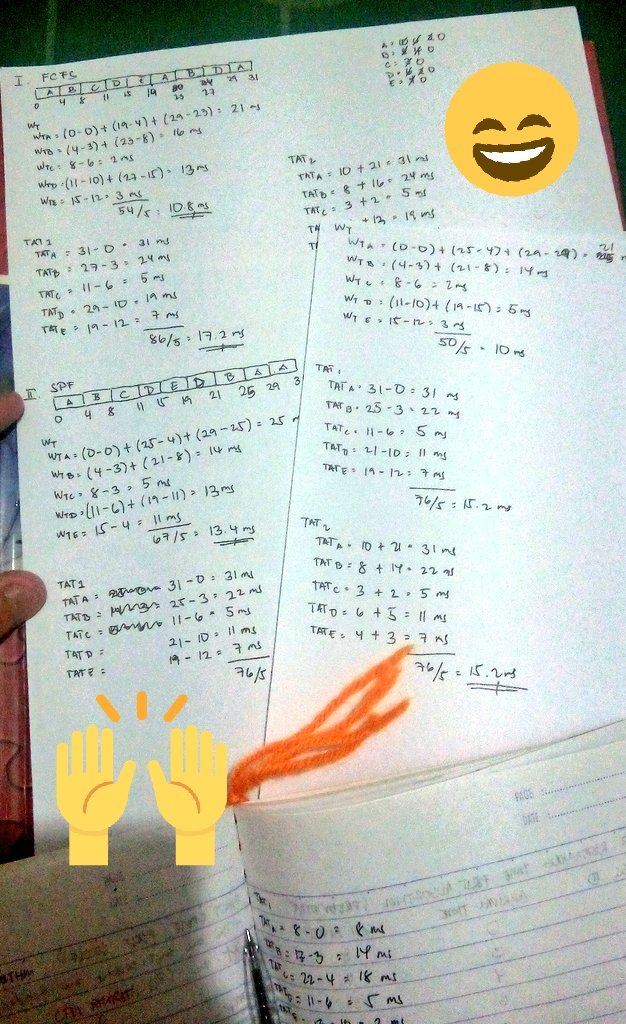 I. FCFS
A B C D E A B D A
0 4 8 11 15 19 23 27 29 31
WT
WTA = (0-0) + (19-4) + (29-23) = 21 ms
WTB = (4-3) + (23-8) = 16 ms
WTC = 8-6 = 2 ms
WTD = (11-10) + (27-15) = 13 ms
WTE = 15-12 = 3 ms
54/5 = 10.8 ms
TAT1
TATA = 31-0 = 31 ms
TATB = 27-3 = 24 ms
TATC = 11-6 = 5 ms
TATD = 29-10 = 19 ms
TATE = 19-12 = 7 ms
86/5 = 17.2 ms
TAT2
TATA = 10 + 21 = 31 ms
TATB = 8 + 16 = 24 ms
TATC = 3 + 2 = 5 ms
+ 13 = 19 ms
II. SPF
A B C D E D B A A
0 4 8 11 15 19 21 25 29 3
WT
WTA = (0-0) + (25-4) + (29-25) = 25 m
WTB = (4-3) + (21-8) = 14 ms
WTC = 8-3 = 5 ms
WTD = (11-6) + (19-11) = 13 ms
WTE = 15-4 = 11 ms
67/5 = 13.4 ms
TAT1
TATA = 31-0 = 31 ms
TATB = 25-3 = 22 ms
TATC = 11-6 = 5 ms
TATD = 21-10 = 11 ms
TATE = 19-12 = 7 ms
76/5
WT
WTA = (0-0) + (25-4) + (29-29) = 21
WTB = (4-3) + (21-8) = 14 ms
WTC = 8-6 = 2 ms
WTD = (11-10) + (19-15) = 5 ms
WTE = 15-12 = 3 ms
50/5 = 10 ms
TAT1
TATA = 31-0 = 31 ms
TATB = 25-3 = 22 ms
TATC = 11-6 = 5 ms
TATD = 21-10 = 11 ms
TATE = 19-12 = 7 ms
76/5 = 15.2 ms
TAT2
TATA = 10 + 21 = 31 ms
TATB = 8 + 14 = 22 ms
TATC = 3 + 2 = 5 ms
TATD = 6 + 5 = 11 ms
TATE = 4 + 3 = 7 ms
76/5 = 15.2 ms
TAT1
TATA = 8-0 = 8 ms
TATB = 17-3 = 14 ms
TATC = 22-4 = 18 ms
TATD = 11-6 = 5 ms